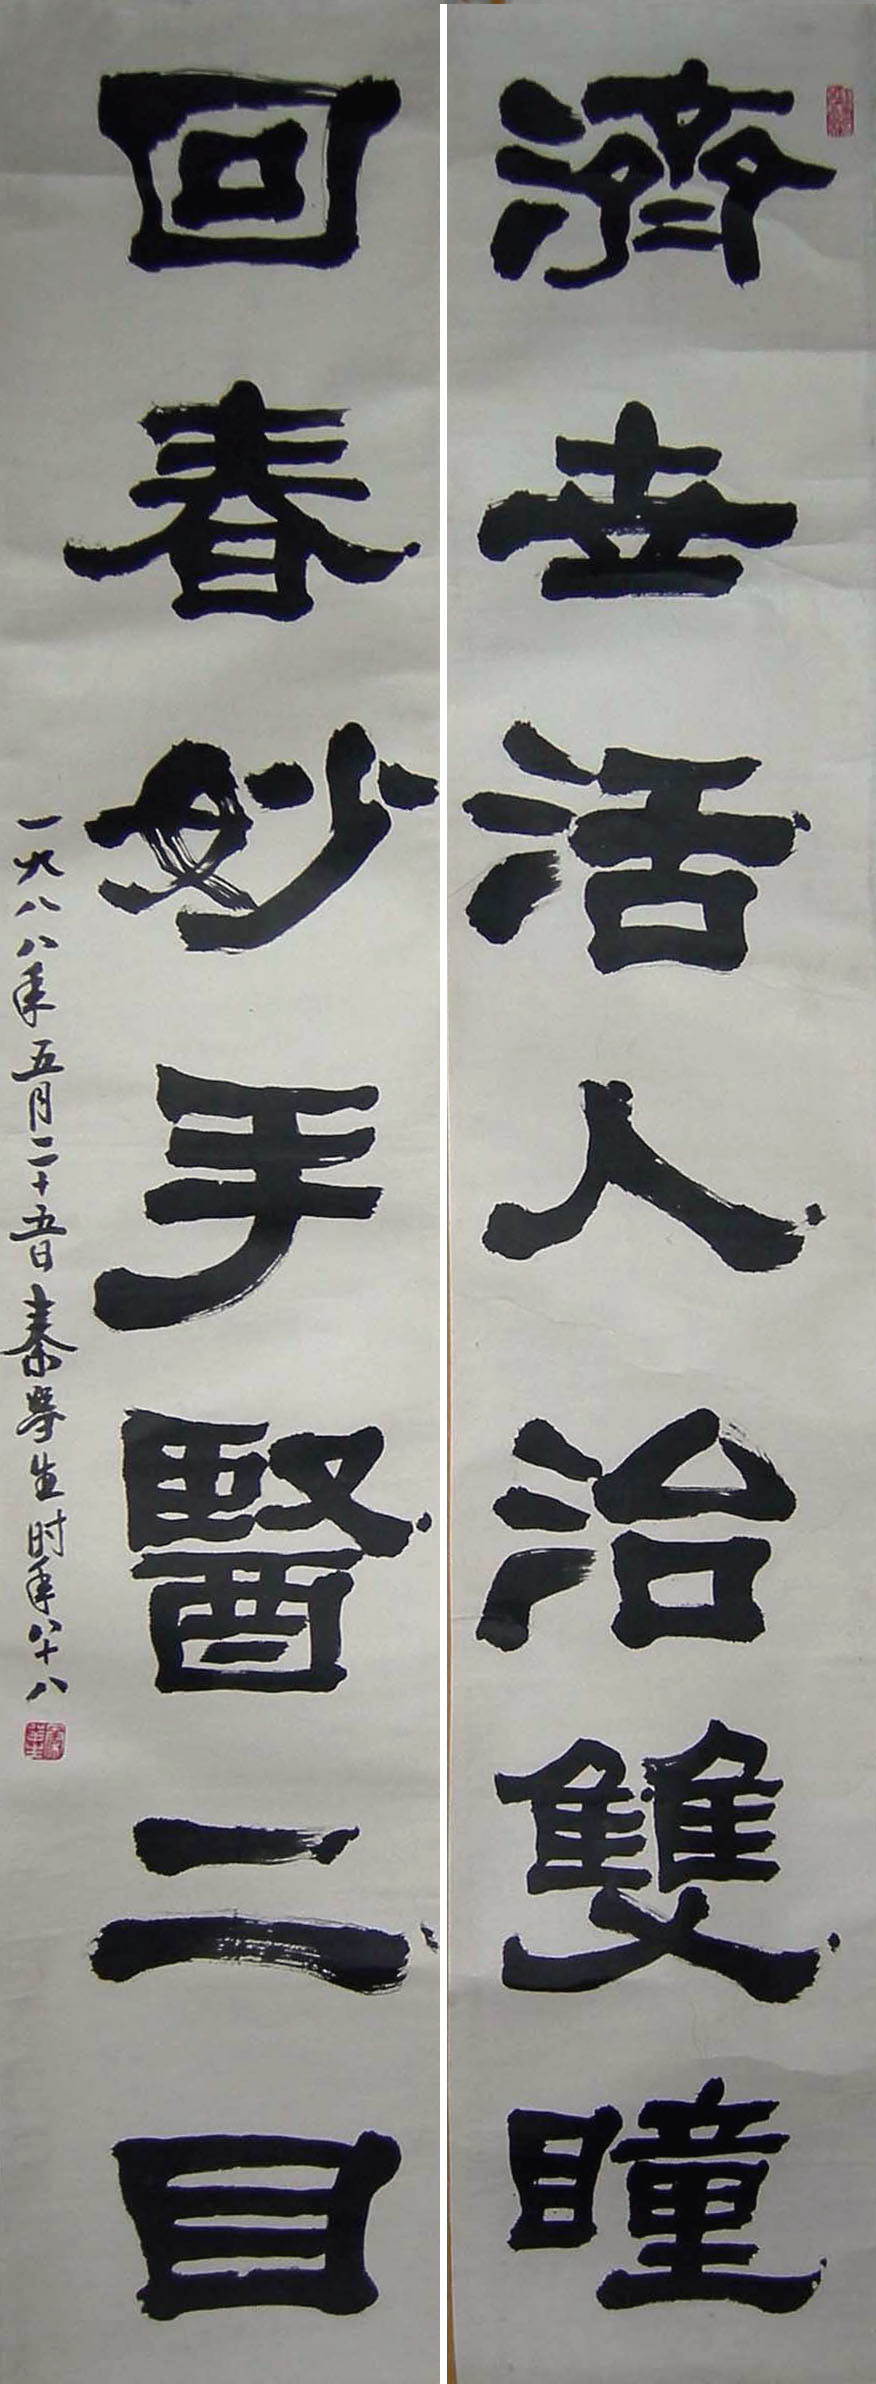 濟世活人治雙瞳
回春妙手醫二目
一九八八年五月二十五日秦學生时年八十八